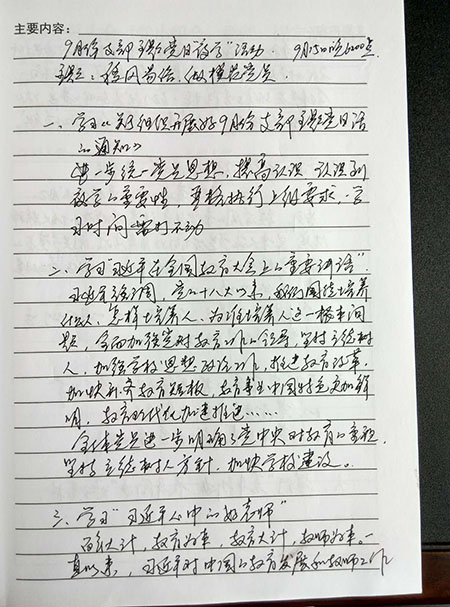 主要内容:
9月份支部主题党日"议学"活动. 9月15日晚6:00点
主题:强 尚信,做模范党员
一、学习《关于组织开展好9月份支部主题党日活
的通知》
进一步统一党员思想,提高认识 认识到
教学的重要性,严格执行上级要求.学
习时间雷打不动
二、学习"习近平在全国教育大会上的重要讲话".
习近平强调,党的十八大以来,我们围绕培养
什么人、怎样培养人、为谁培养人这一根本问
题,全面加强党对教育工作的领导,坚持立德树
人,加强学校思想政治工作,推进教育改革.
加快补齐教育短板,教育事业中国特色更加鲜
明,教育现代化加速推进……
全体党员进一步明确了党中央对教育的重视.
坚持立德树人方针,加快学校建设。
三、学习"习近平心中的好老师"
百年大计,教育为本,教育大计,教师为本。一
直以来,习近平对中国的教育发展和教师工作